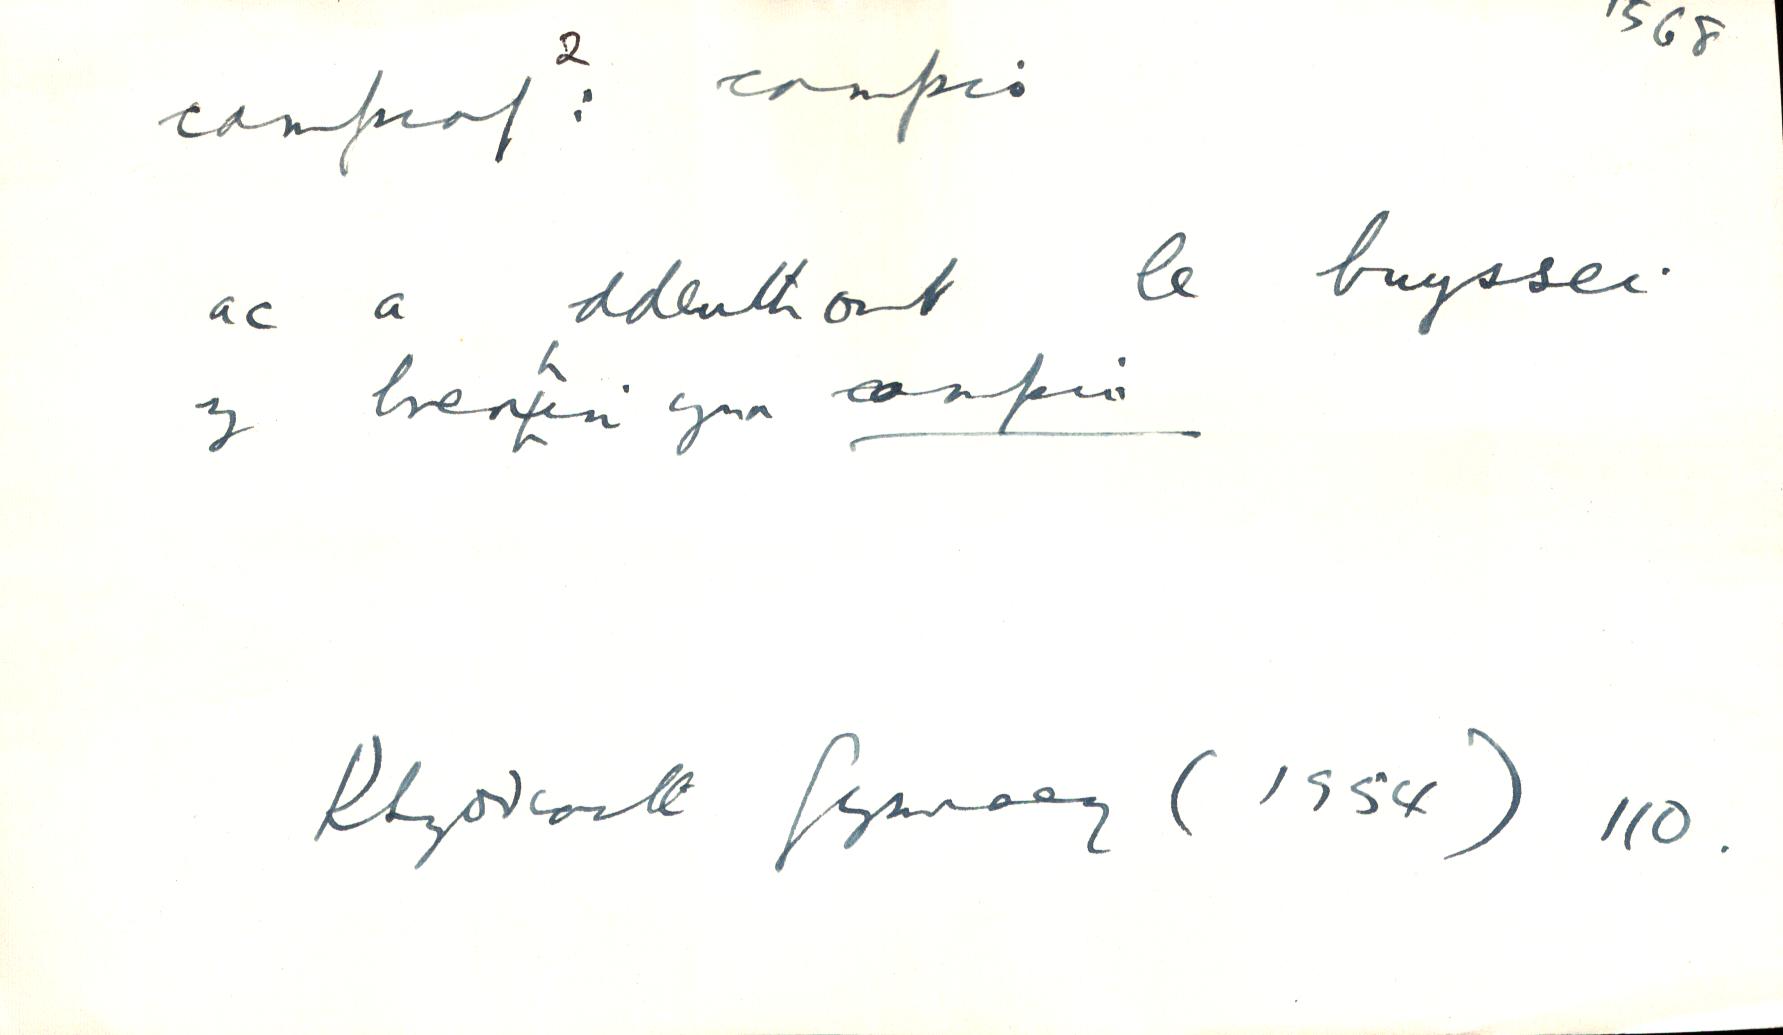 1568
campiaf²: campio
ac a ddeuthont lle buyssei
y brenhin yna campio
Rhyddiaith Gymraeg (1954) 110.